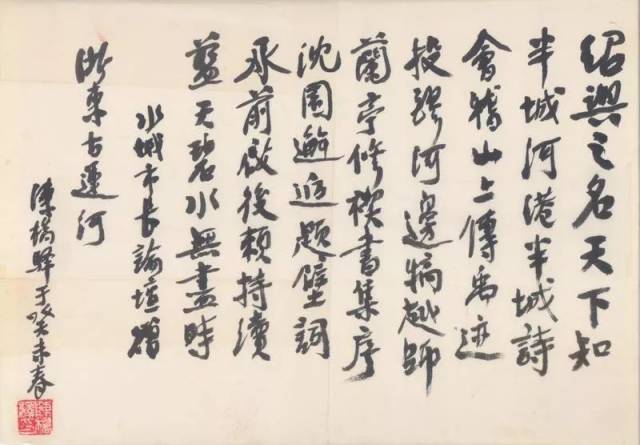 紹興之名天下知
半城河港半城詩
會稽山上傳禹迹
投醪河邊犒越師
蘭亭修禊書集序
沈園邂逅題壁詞
承前啟後賴持續
藍天碧水無盡時
水城市長論壇贈
浙東古運河
陳橋驛于癸未春